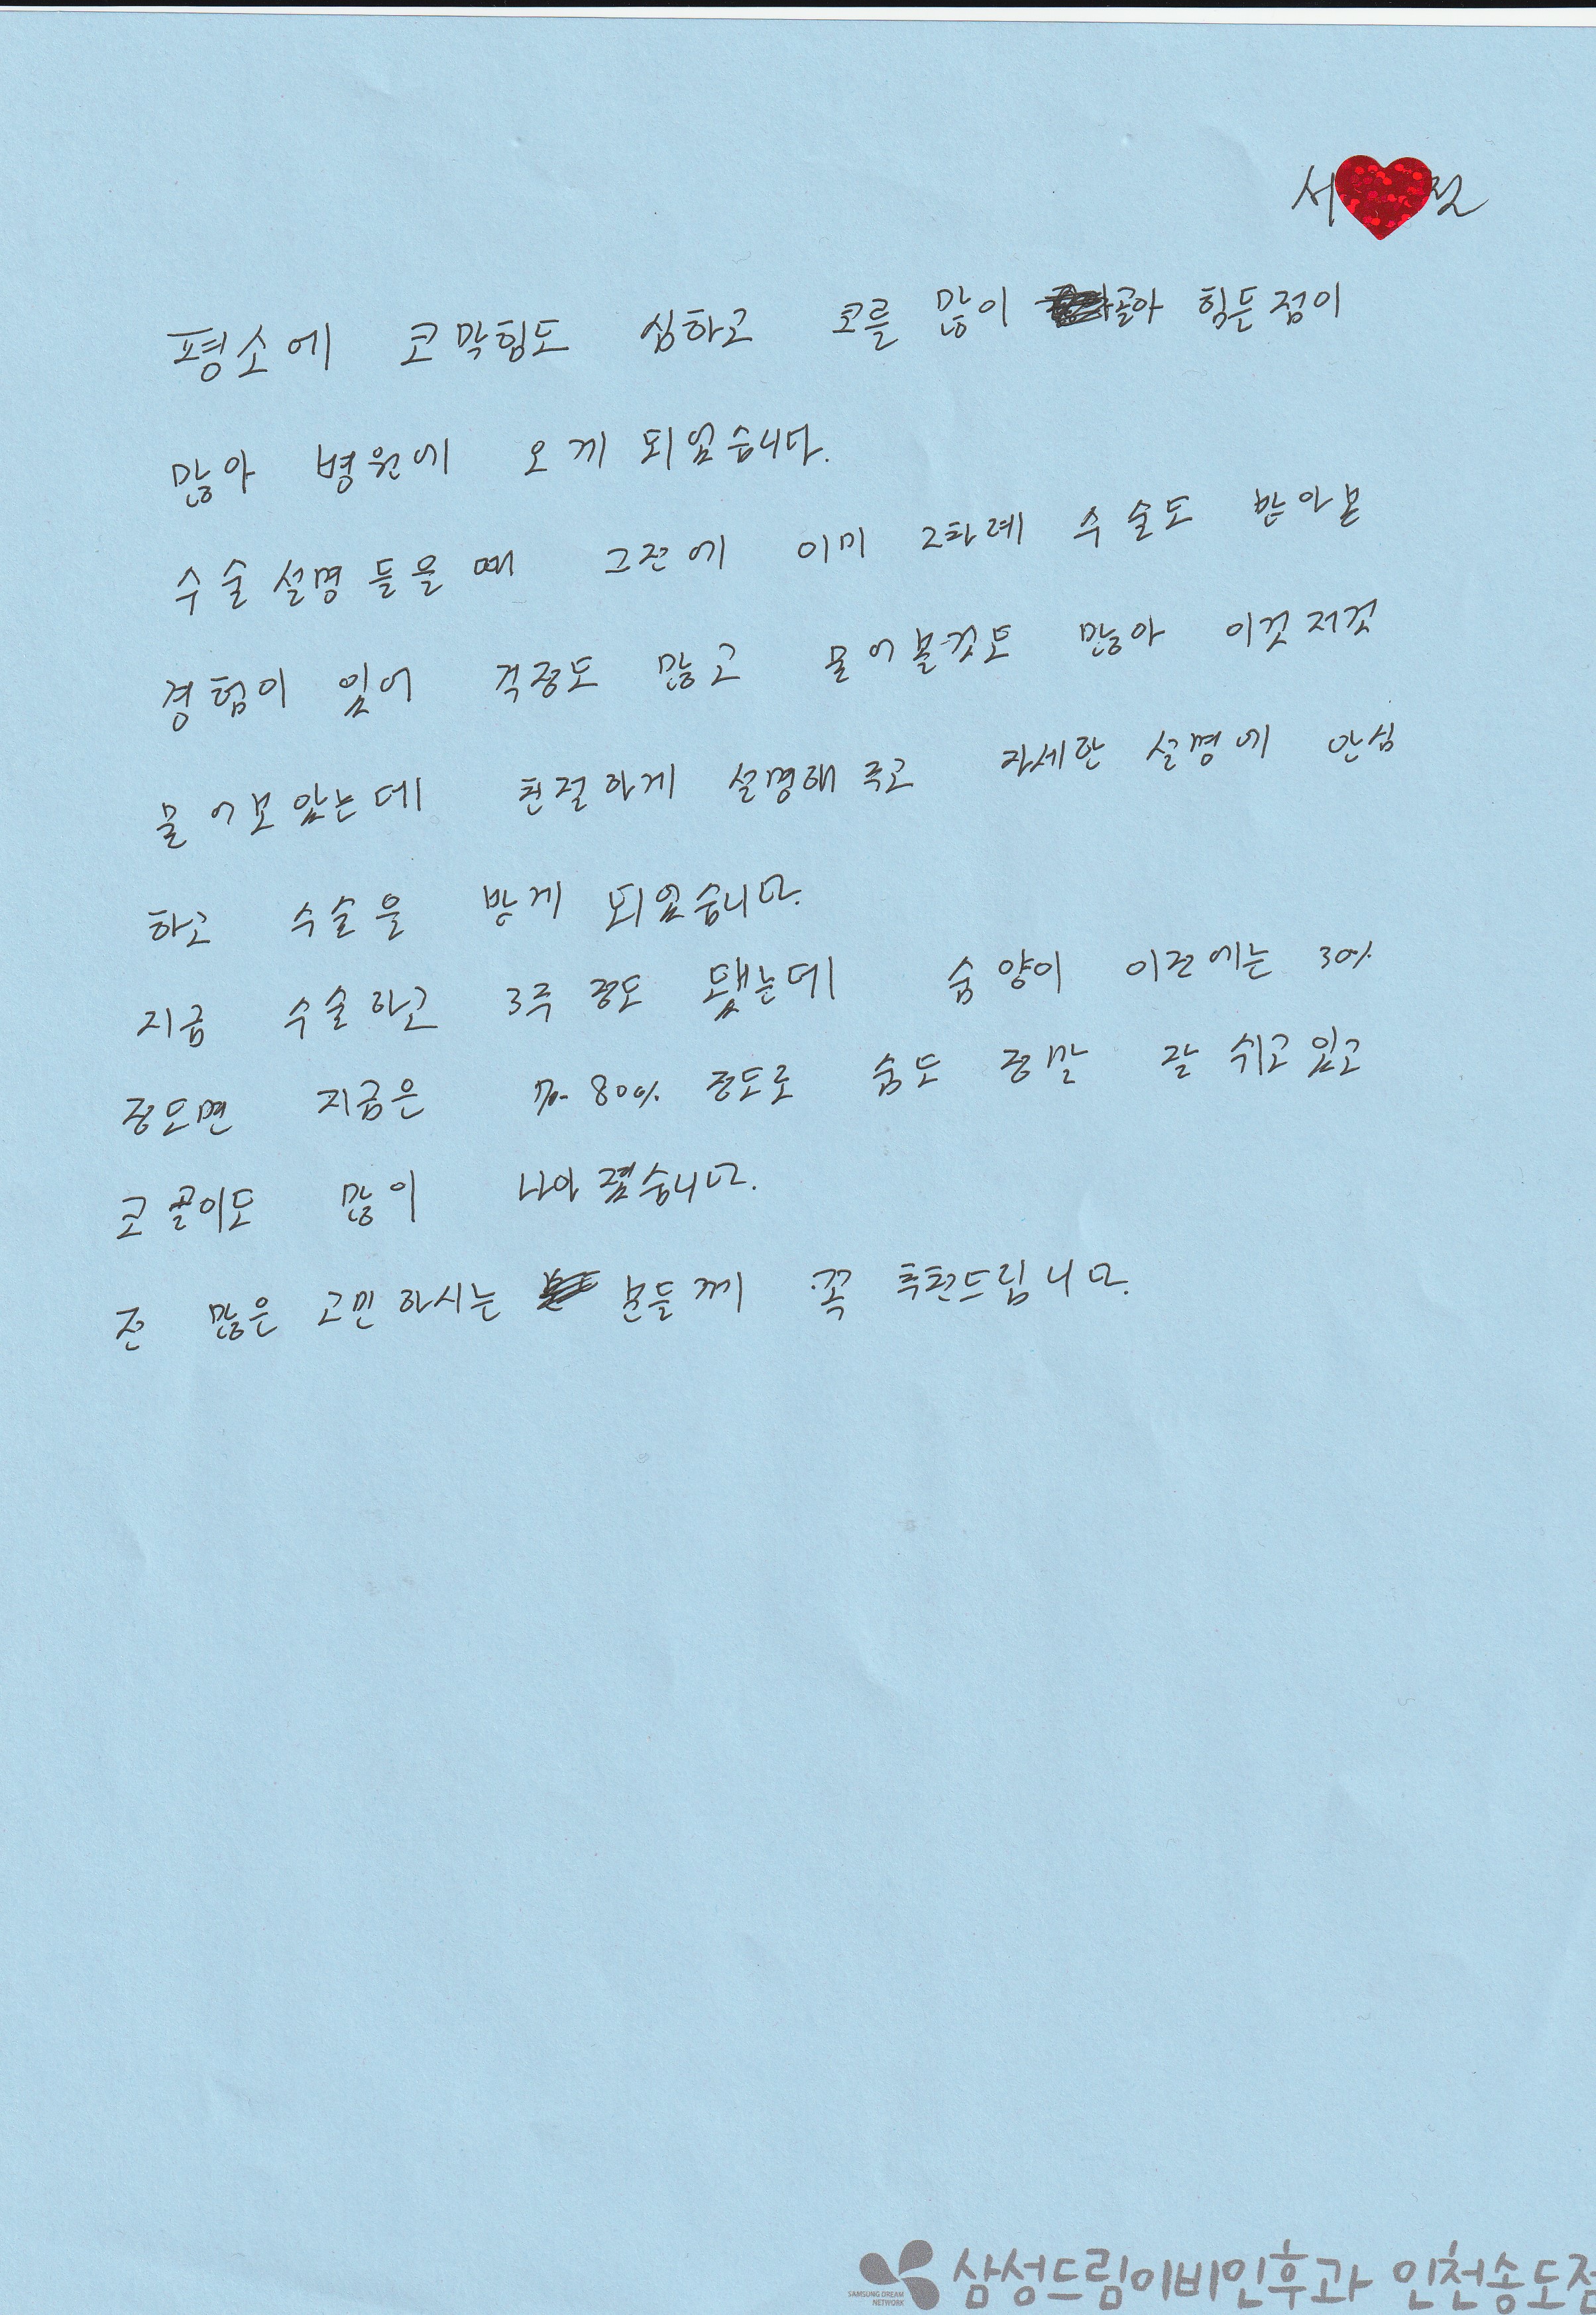 서
평소에 코막힘도 심하고 코를 많이 골아 힘든점이
많아 병원에 오게 되었습니다.
수술설명 들을때 그전에 이미 2차례 수술도 받아본
경험이 있어 걱정도 많고 물어볼것도 많아 이것저것
물어보았는데 친절하게 설명해주고 자세한 설명에 안심
하고 수술을 받게 되었습니다.
지금 수술하고 3주정도 됐는데 숨양이 이전에는 30%
정도면 지금은 70-80% 정도로 숨도 정말 잘 쉬고있고
코골이도 많이 나아졌습니다.
전 많은 고민하시는 분들께 꼭 추천드립니다.
SAMSUNG DREAM
NETWORK
삼성드림이비인후과 인천송도점